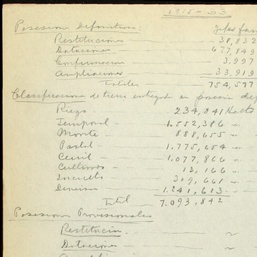 1915-33
Posesion Definitiva
Restituciones 38,832
Dotaciones 677,849
Confirmacion 3,997
Ampliaciones 33,919
Totales 754,597
Clasificacion de tierra entregada en posesion def
Riego 234,341 Hects
Temporal 1.552,386 "
Monte 888,655 "
Pastal 1.775,654 "
Cerril 1.077,866 "
Cultivos 13,166 "
Indefinido 309,661 "
Diversos 1.241,613 "
Total 7.093,842
Posesiones Provisionales
Restitucion "
Dotaciones "